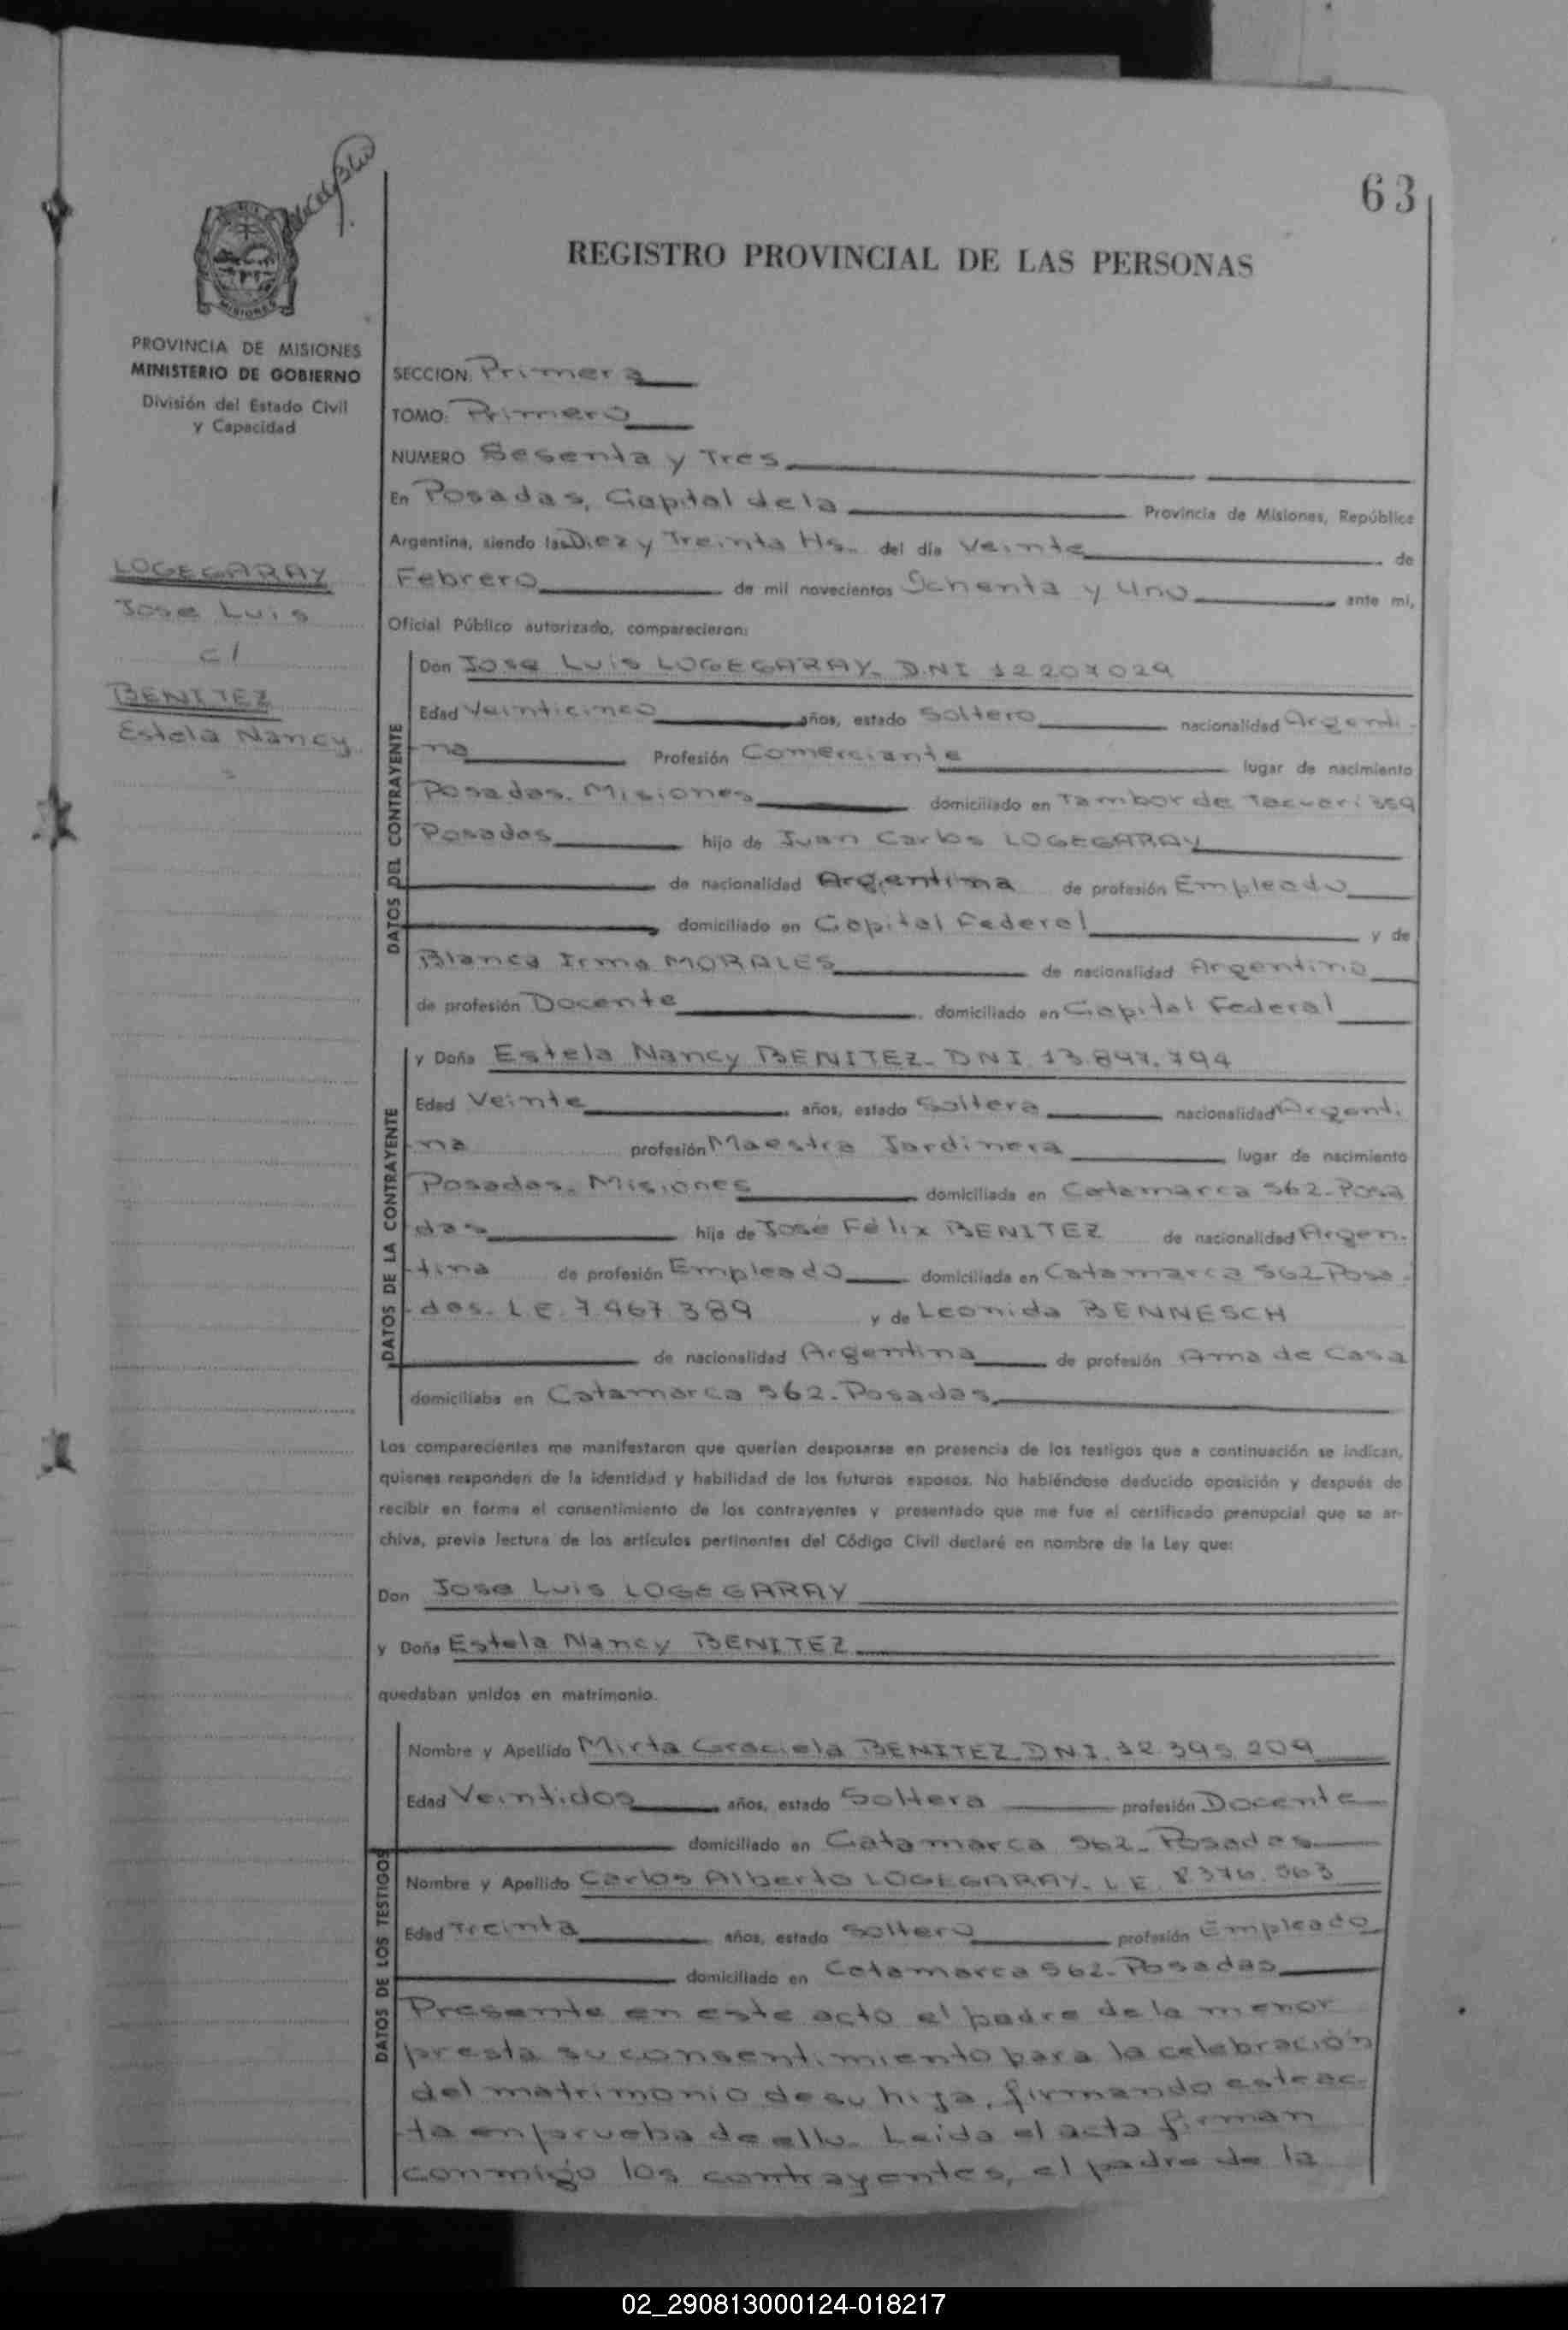 63
REGISTRO PROVINCIAL DE LAS PERSONAS
MISIONES
PROVINCIA DE MISIONES
MINISTERIO DE GOBIERNO
División del Estado Civil
y Capacidad
LOGEGARAY
Jose Luis
c/
BENITEZ
Estela Nancy
SECCION: Primera
TOMO: Primero
NUMERO Sesenta y Tres
En Posadas, Capital de la Provincia de Misiones, República
Argentina, siendo las Diez y Treinta Hs. del día Veinte de
Febrero de mil novecientos Ochenta y Uno ante mi,
Oficial Público autorizado, comparecieron:
DATOS DEL CONTRAYENTE
Don Jose Luis LOGEGARAY. D.N.I 12207029
Edad Veinticinco años, estado Soltero nacionalidad Argenti-
na Profesión Comerciante lugar de nacimiento
Posadas. Misiones domiciliado en Tambor de Tacuari 359
Posadas hijo de Juan Carlos LOGEGARAY
de nacionalidad Argentina de profesión Empleado
domiciliado en Capital Federal y de
Blanca Irma MORALES de nacionalidad Argentina
de profesión Docente domiciliado en Capital Federal
DATOS DE LA CONTRAYENTE
y Doña Estela Nancy BENITEZ- DNI. 13.847.794
Edad Veinte años, estado Soltera nacionalidad Argenti-
na profesión Maestra Jardinera lugar de nacimiento
Posadas. Misiones domiciliada en Catamarca 562-Posa
das hija de José Félix BENITEZ de nacionalidad Argen-
tina de profesión Empleado domiciliada en Catamarca 562 Posa-
das. L.E. 7.467.389 y de Leonida BENNESCH
de nacionalidad Argentina de profesión Ama de Casa
domiciliaba en Catamarca 562-Posadas.
Los comparecientes me manifestaron que querían desposarse en presencia de los testigos que a continuación se indican,
quienes responden de la identidad y habilidad de los futuros esposos. No habiéndose deducido oposición y después de
recibir en forma el consentimiento de los contrayentes y presentado que me fue el certificado prenupcial que se ar-
chiva, previa lectura de los artículos pertinentes del Código Civil declaré en nombre de la Ley que:
Don Jose Luis LOGEGARAY
y Doña Estela Nancy BENITEZ
quedaban unidos en matrimonio.
DATOS DE LOS TESTIGOS
Nombre y Apellido Mirta Graciela BENITEZ. D.N.I. 12.395.209
Edad Veintidos años, estado Soltera profesión Docente
domiciliado en Catamarca 562- Posadas
Nombre y Apellido Carlos Alberto LOGEGARAY. L.E. 8.376.563
Edad Treinta años, estado Soltero profesión Empleado
domiciliado en Catamarca 562-Posadas
Presente en este acto el padre de la menor
presta su consentimiento para la celebración
del matrimonio de su hija, firmando este ac-
ta en prueba de ello. Leida el acta firman
conmigo los contrayentes, el padre de la
02_290813000124-018217